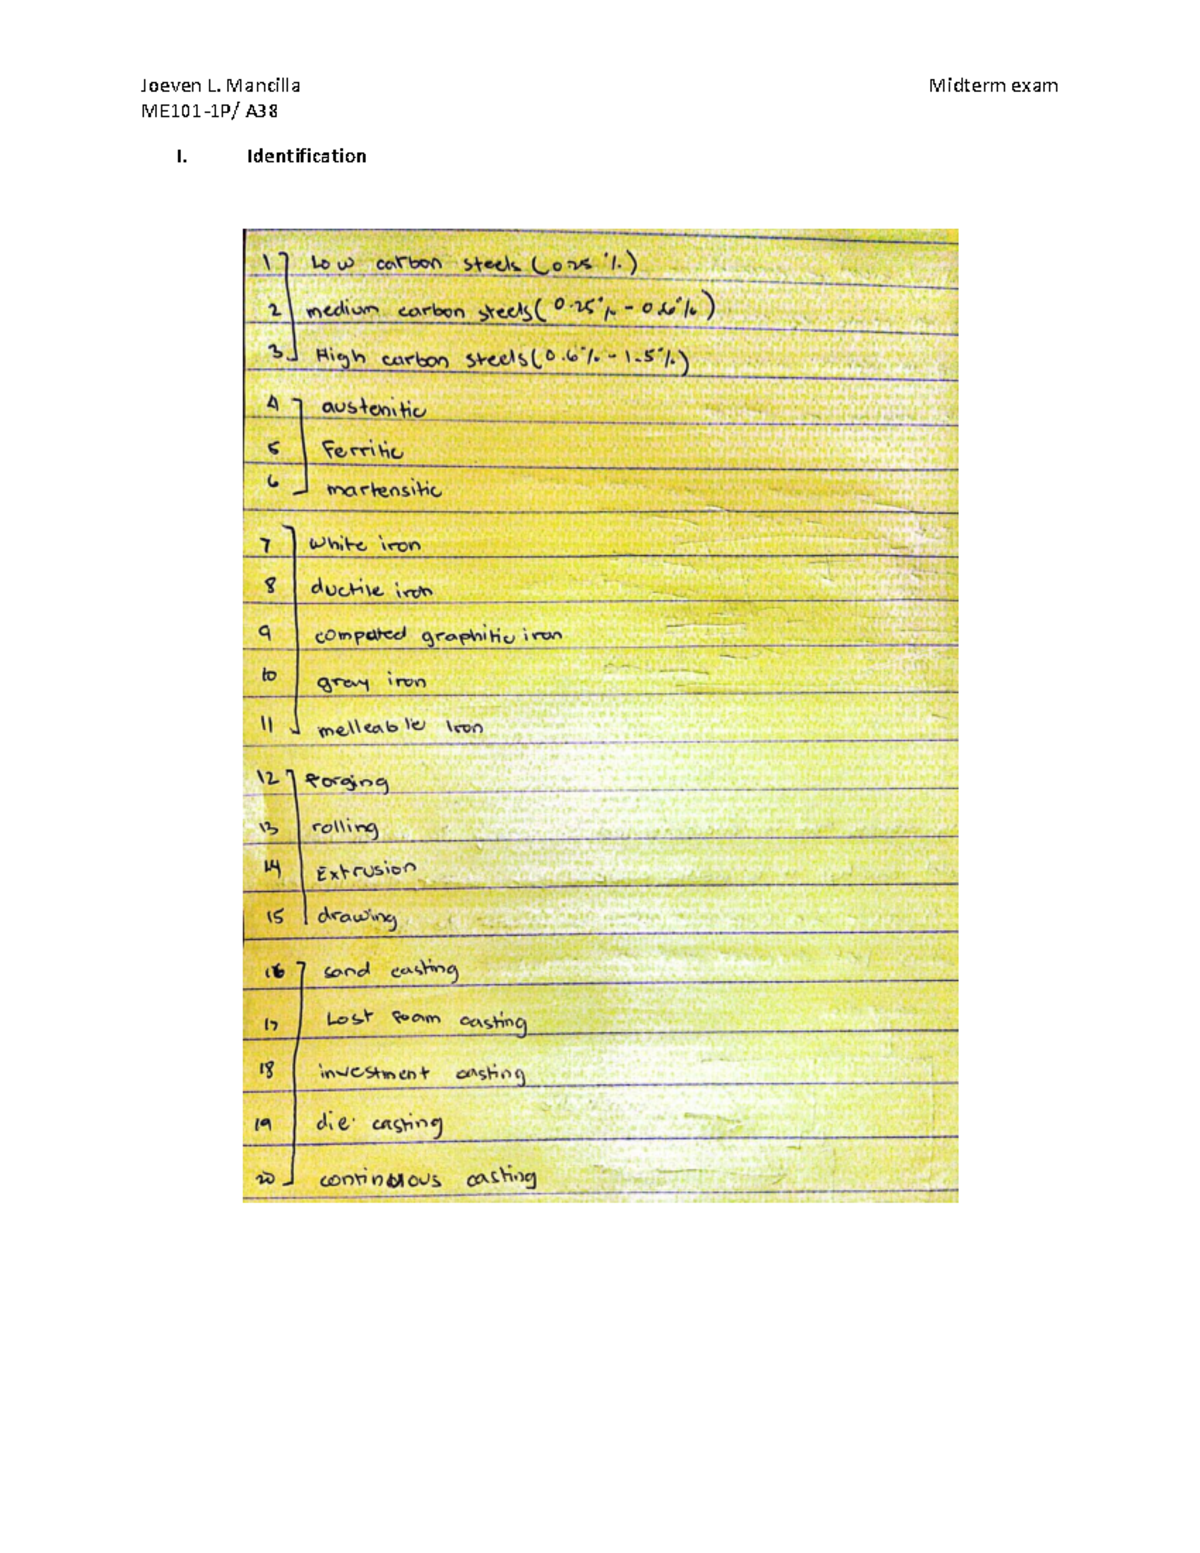 Joeven L. Mancilla Midterm exam
ME101-1P/ A38
I. Identification
1 Low carbon steels (0.25%)
2 medium carbon steels (0.25% - 0.6%)
3 High carbon steels (0.6% - 1.5%)
4 austenitic
5 Ferritic
6 martensitic
7 white iron
8 ductile iron
9 compated graphitic iron
10 gray iron
11 melleable Iron
12 Forging
13 rolling
14 Extrusion
15 drawing
16 sand casting
17 Lost foam casting
18 investment casting
19 die casting
20 continuous casting